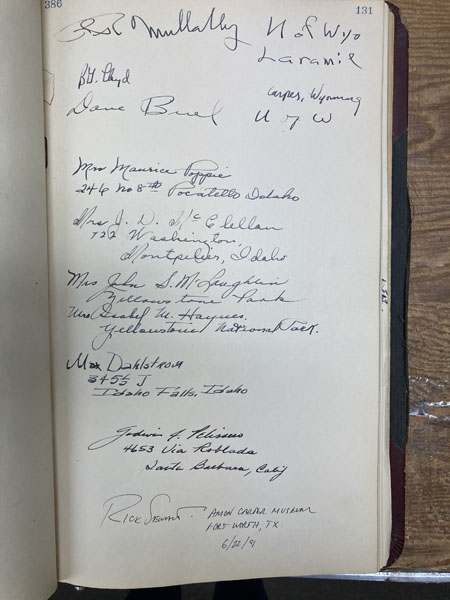 386
131
Mullally U of Wyo
Laramie
B.G. Lloyd Casper, Wyoming
Dave Buel U of W
Mrs Maurice Poppie
246 No 8th Pocatello Idaho
Mrs J. D. McClellan
722 Washington,
Montpelier, Idaho
Mrs John S. McLaughlin
Yellowstone Park
Mrs Isabel M. Haynes.
Yellowstone National Park.
Max Dahlstrom
3455 J
Idaho Falls, Idaho
Godwin J. Pelissero
4653 Via Roblada
Santa Barbara, Calif
Rick Stewart Amon Carter Museum
Fort Worth, TX.
6/22/91